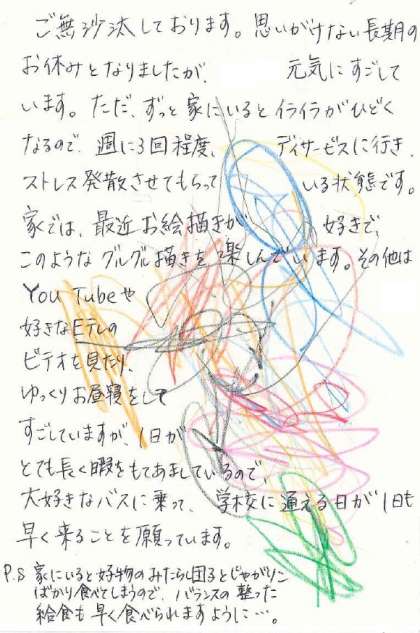 ご無沙汰しております。思いがけない長期の
お休みとなりましたが、元気にすごして
います。ただ、ずっと家にいるとイライラがひどく
なるので、週に3回程度、デイサービスに行き、
ストレス発散させてもらっている状態です。
家では、最近お絵描きが好きで、
このようなグルグル描きを楽しんでいます。その他は
YouTubeや
好きなEテレの
ビデオを見たり、
ゆっくりお昼寝をして
すごしていますが、1日が
とても長く暇をもてあましているので、
大好きなバスに乗って、学校に通える日が1日も
早く来ることを願っています。
P.S 家にいると好物のみたらし団子とじゃがりこ
ばかり食べてしまうので、バランスの整った
給食も早く食べられますように…。